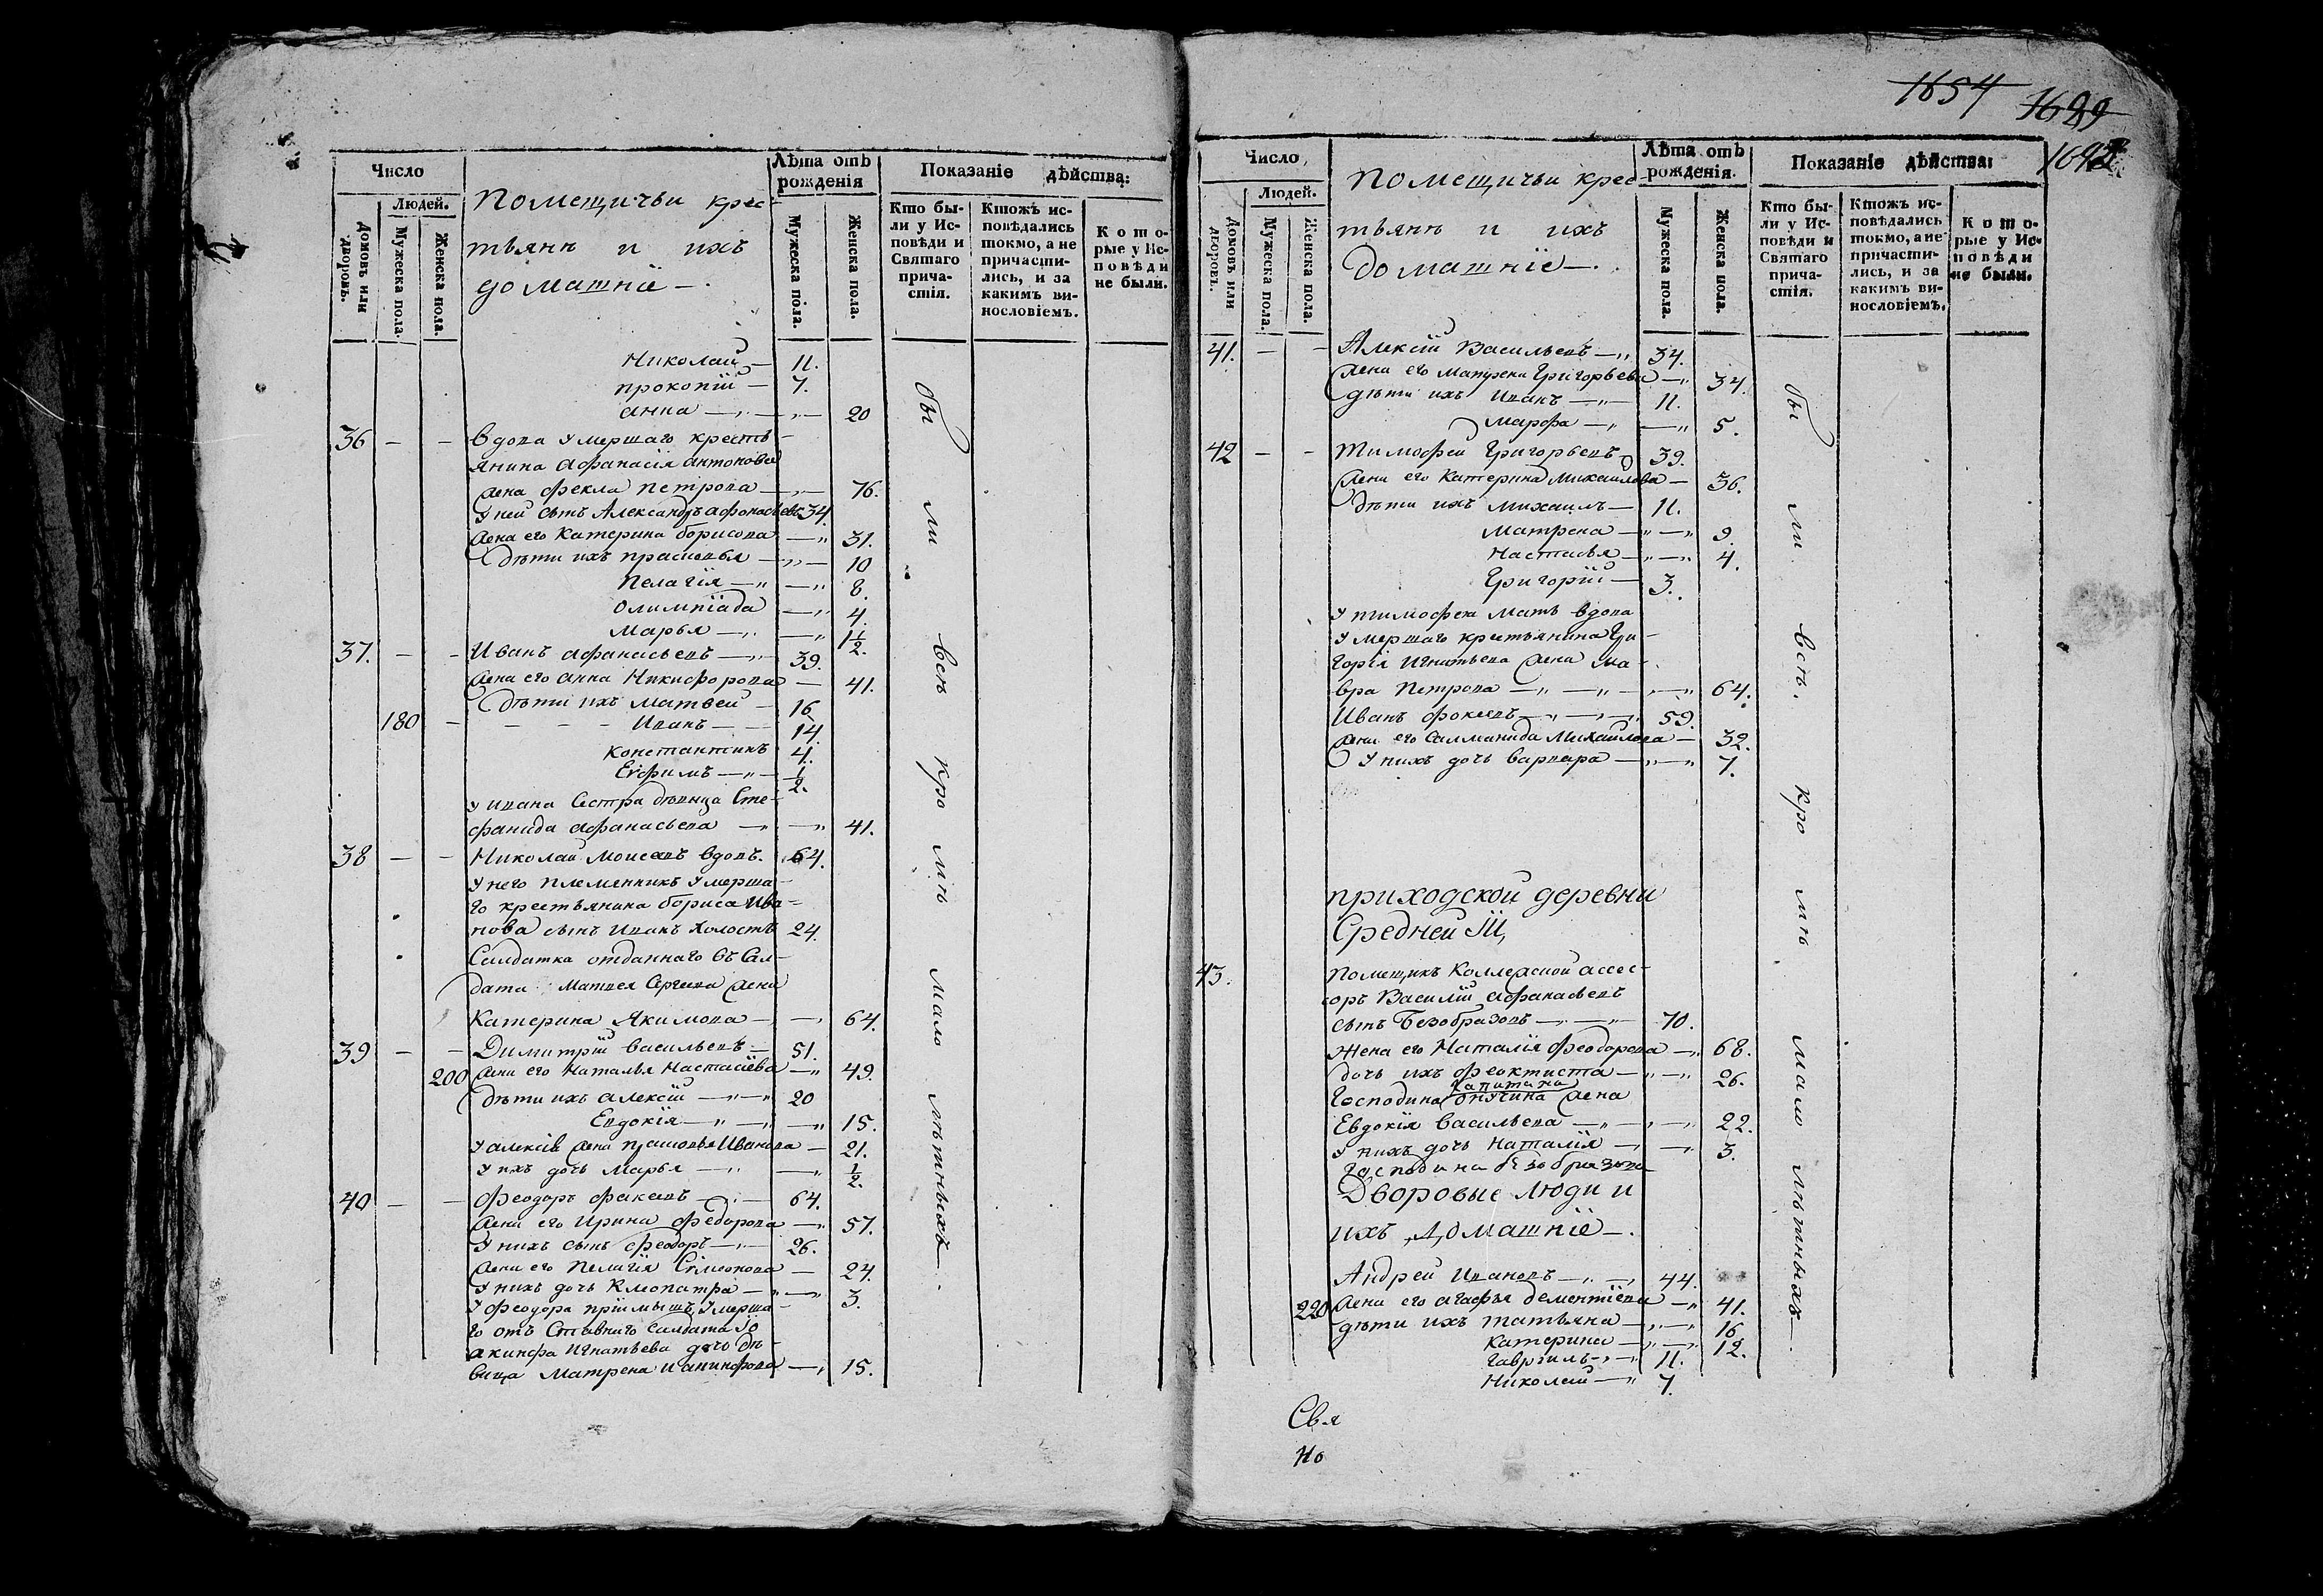 Число
Людей.
Домовъ или дворовъ.
Мужеска пола.
Женска пола.
Помещичьи крес-
тьянъ и ихъ
домашніе —.
Лѣта отъ рожденія
Мужеска пола.
Женска пола.
Показаніе дѣйства:
Кто бы-
ли у Ис-
повѣди и
Святаго
прича-
стія.
Ктожъ ис-
повѣдались
токмо, а не
причасти-
лись, и за
какимъ ви-
нословіемъ.
Кото-
рые у Ис-
повѣди
не были.
Николай — 11.
Прокопій — 7.
Анна — 20
36 — — Вдова умершаго кресть-
янина Афанасія Антонова
жена Фекла Петрова — 76.
У ней сынъ Александръ Афонасьевъ 34.
жена его Катерина Борисова — 31.
дѣти ихъ Прасковья — 10
Пелагія — 8.
Олимпіада — 4.
Марья — 1 1/2.
37. — — Иванъ Афанасьевъ — 39.
жена его Анна Никифорова — 41.
дѣти ихъ Матвей — 16
180 — — Иванъ — 14.
Константинъ 4.
Ефимъ — 1/2.
У Ивана сестра дѣвица Сте-
фанида Афанасьева — 41.
38 — — Николай Моисеевъ вдовъ. 64.
У него племянникъ умерша-
го крестьянина Бориса Ива-
нова сынъ Иванъ холостъ 24.
Салдатка отданнаго въ Сал-
дата Матвея Сергеева жена
Катерина Якимова — 64.
39 — — Димитрій Васильевъ — 51.
200 жена его Наталья Настасіева — 49.
дѣти ихъ Алексій — 20
Евдокія — 15.
У Алексія жена Прасковья Иванова — 21.
У ихъ дочь Марья — 1/2.
40 — — Феодоръ Факеевъ — 64.
жена его Ирина Федорова — 57.
У нихъ сынъ Феодоръ — 26.
жена его Пелагія Симеонова — 24.
У нихъ дочь Клеопатра — 3.
У Феодора пріимышъ умерша-
го отъ Ставнаго Салдата Іо
акинфа Игнатьева дочь дѣ-
вица Матрена — 15.
бы ли всѣ кро мѣ мало лѣтныхъ —.
1654
1689
Число
Людей.
Домовъ или дворовъ.
Мужеска пола.
Женска пола.
Помещичьи крес-
тьянъ и ихъ
домашніе —.
Лѣта отъ рожденія.
Мужеска пола.
Женска пола.
Показаніе дѣйства:
Кто бы-
ли у Ис-
повѣди и
Святаго
прича-
стія.
Ктожъ ис-
повѣдались
токмо, а не
причасти-
лись, и за
какимъ ви-
нословіемъ.
Кото-
рые у Ис-
повѣди
не были.
41. — — Алексій Васильевъ — 34.
жена его Матрена Григорьева — 34.
дѣти ихъ Иванъ — 11.
Марфа — 5.
42 — — Тимофей Григорьевъ 39.
жена его Катерина Михайлова — 36.
дѣти ихъ Михаилъ — 11.
Матрена — 9.
Настасья — 4.
Григорій — 3.
У Тимофея мать вдова
умершаго крестьянина Гри-
горія Игнатьева жена Ма-
вра Петрова — 64.
Иванъ Фокеевъ — 59.
жена его Салманида Михайлова — 32.
У нихъ дочь Варвара — 7.
приходской деревни
Средней
43. Помещикъ Коллежской ассес-
соръ Василій Афанасьевъ
сынъ Безобразовъ — 70.
Жена его Наталія Феодорова — 68.
дочь ихъ Феоктиста — 26.
капитана
Господина жена
Евдокія Васильева — 22.
У нихъ дочь Наталія — 3.
Господина Безобразова
Дворовые люди и
ихъ домашніе —.
Андрей Ивановъ — 44.
220 жена его Агафья Дементіева — 41.
дѣти ихъ Татьяна — 16
Катерина — 12.
Гавріилъ — 11.
Николай — 7.
бы ли всѣ. кро мѣ мало лѣтныхъ —.
Свя
но